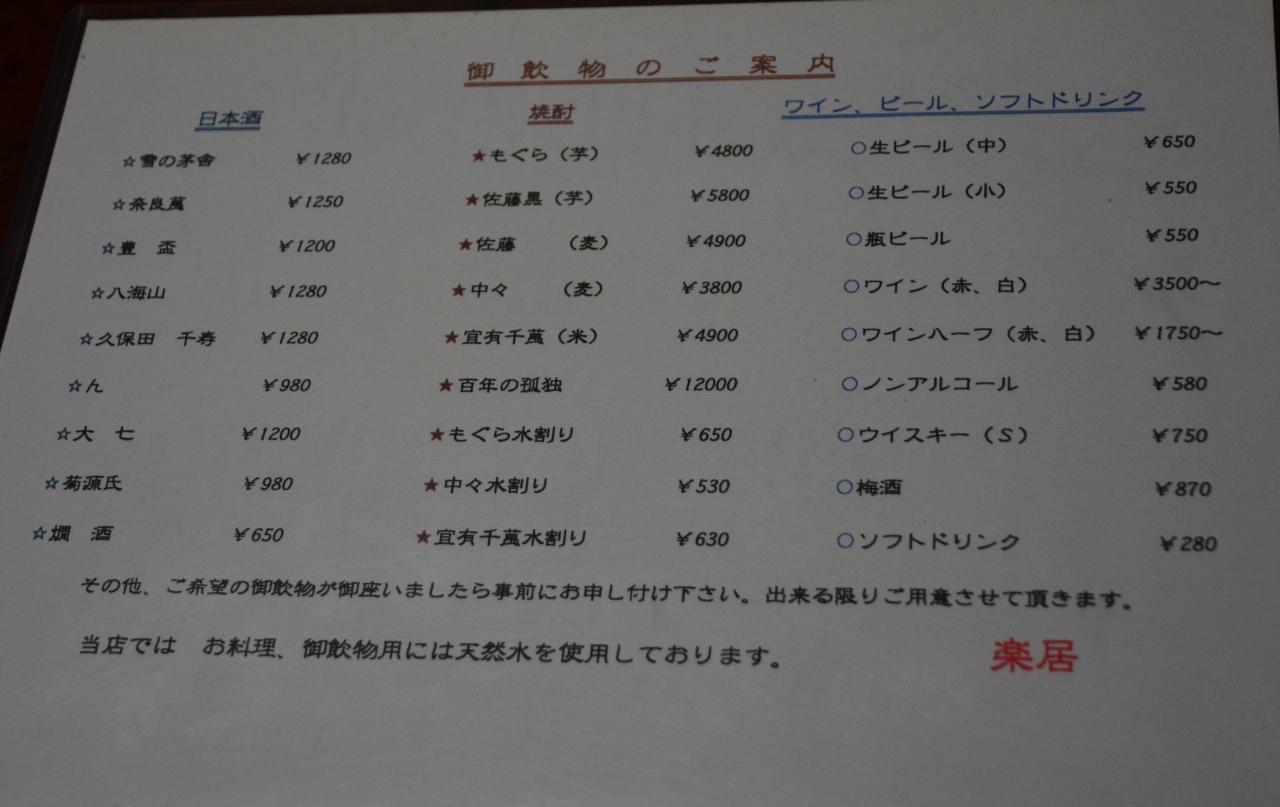 御飲物のご案内
日本酒
☆雪の茅舎 ¥1280
☆奈良萬 ¥1250
☆豊　盃 ¥1200
☆八海山 ¥1280
☆久保田　千寿 ¥1280
☆ん ¥980
☆大　七 ¥1200
☆菊源氏 ¥980
☆燗　酒 ¥650
焼酎
★もぐら（芋） ¥4800
★佐藤黒（芋） ¥5800
★佐藤　　（麦） ¥4900
★中々　　（麦） ¥3800
★宜有千萬（米） ¥4900
★百年の孤独 ¥12000
★もぐら水割り ¥650
★中々水割り ¥530
★宜有千萬水割り ¥630
ワイン、ビール、ソフトドリンク
○生ビール（中） ¥650
○生ビール（小） ¥550
○瓶ビール ¥550
○ワイン（赤、白） ¥3500～
○ワインハーフ（赤、白） ¥1750～
○ノンアルコール ¥580
○ウイスキー（S） ¥750
○梅酒 ¥870
○ソフトドリンク ¥280
その他、ご希望の御飲物が御座いましたら事前にお申し付け下さい。出来る限りご用意させて頂きます。
当店では　お料理、御飲物用には天然水を使用しております。
楽居